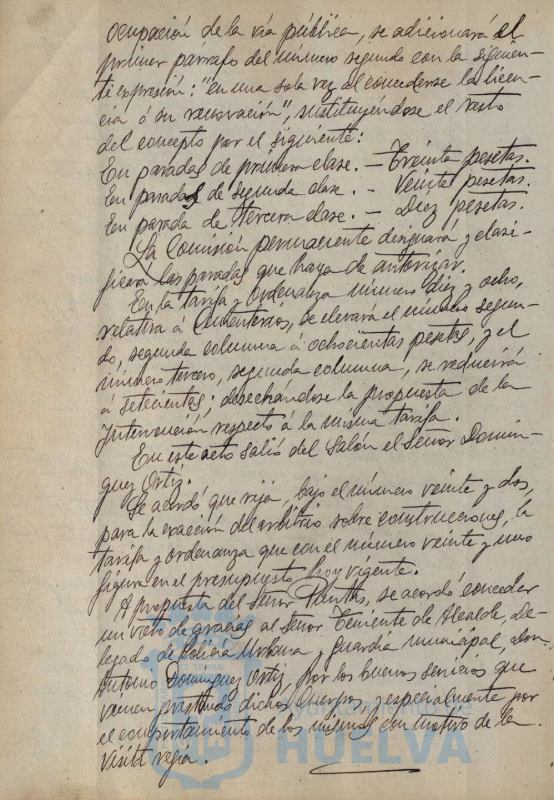 ocupación de la vía pública, se adicionará el
primer párrafo del número segundo con la siguien-
te expresión: "en una sola vez al concederse la licen-
cia ó su renovación", sustituyéndose el resto
del concepto por el siguiente:
En paradas de primera clase. — Treinta pesetas.
En paradas de segunda clase. — Veinte pesetas.
En parada de tercera clase. — Diez pesetas.
La Comisión permanente designará y clasi-
ficará las paradas que haya de autorizar.
En la tarifa y Ordenanza número diez y ocho,
relativa á Cementerios, se elevará el número segun-
do, segunda columna á ochocientas pesetas, y el
número tercero, segunda columna, se reducirá
á setecientas; desechándose la propuesta de la
Intervención respecto á la misma tarifa.
En este acto salió del Salón el Señor Domin-
guez Ortiz.
Se acordó que rija, bajo el número veinte y dos,
para la exacción del arbitrio sobre construcciones, la
tarifa y ordenanza que con el número veinte y uno
figura en el presupuesto hoy vigente.
A propuesta del Señor, se acordó conceder
un voto de gracias al Señor Teniente de Alcalde, De-
legado de Policía Urbana y Guardia municipal, Don
Antonio Dominguez Ortiz, por los buenos servicios que
vienen prestando dichos Cuerpos, y especialmente por
el comportamiento de los mismos con motivo de la
visita regia.
HUELVA